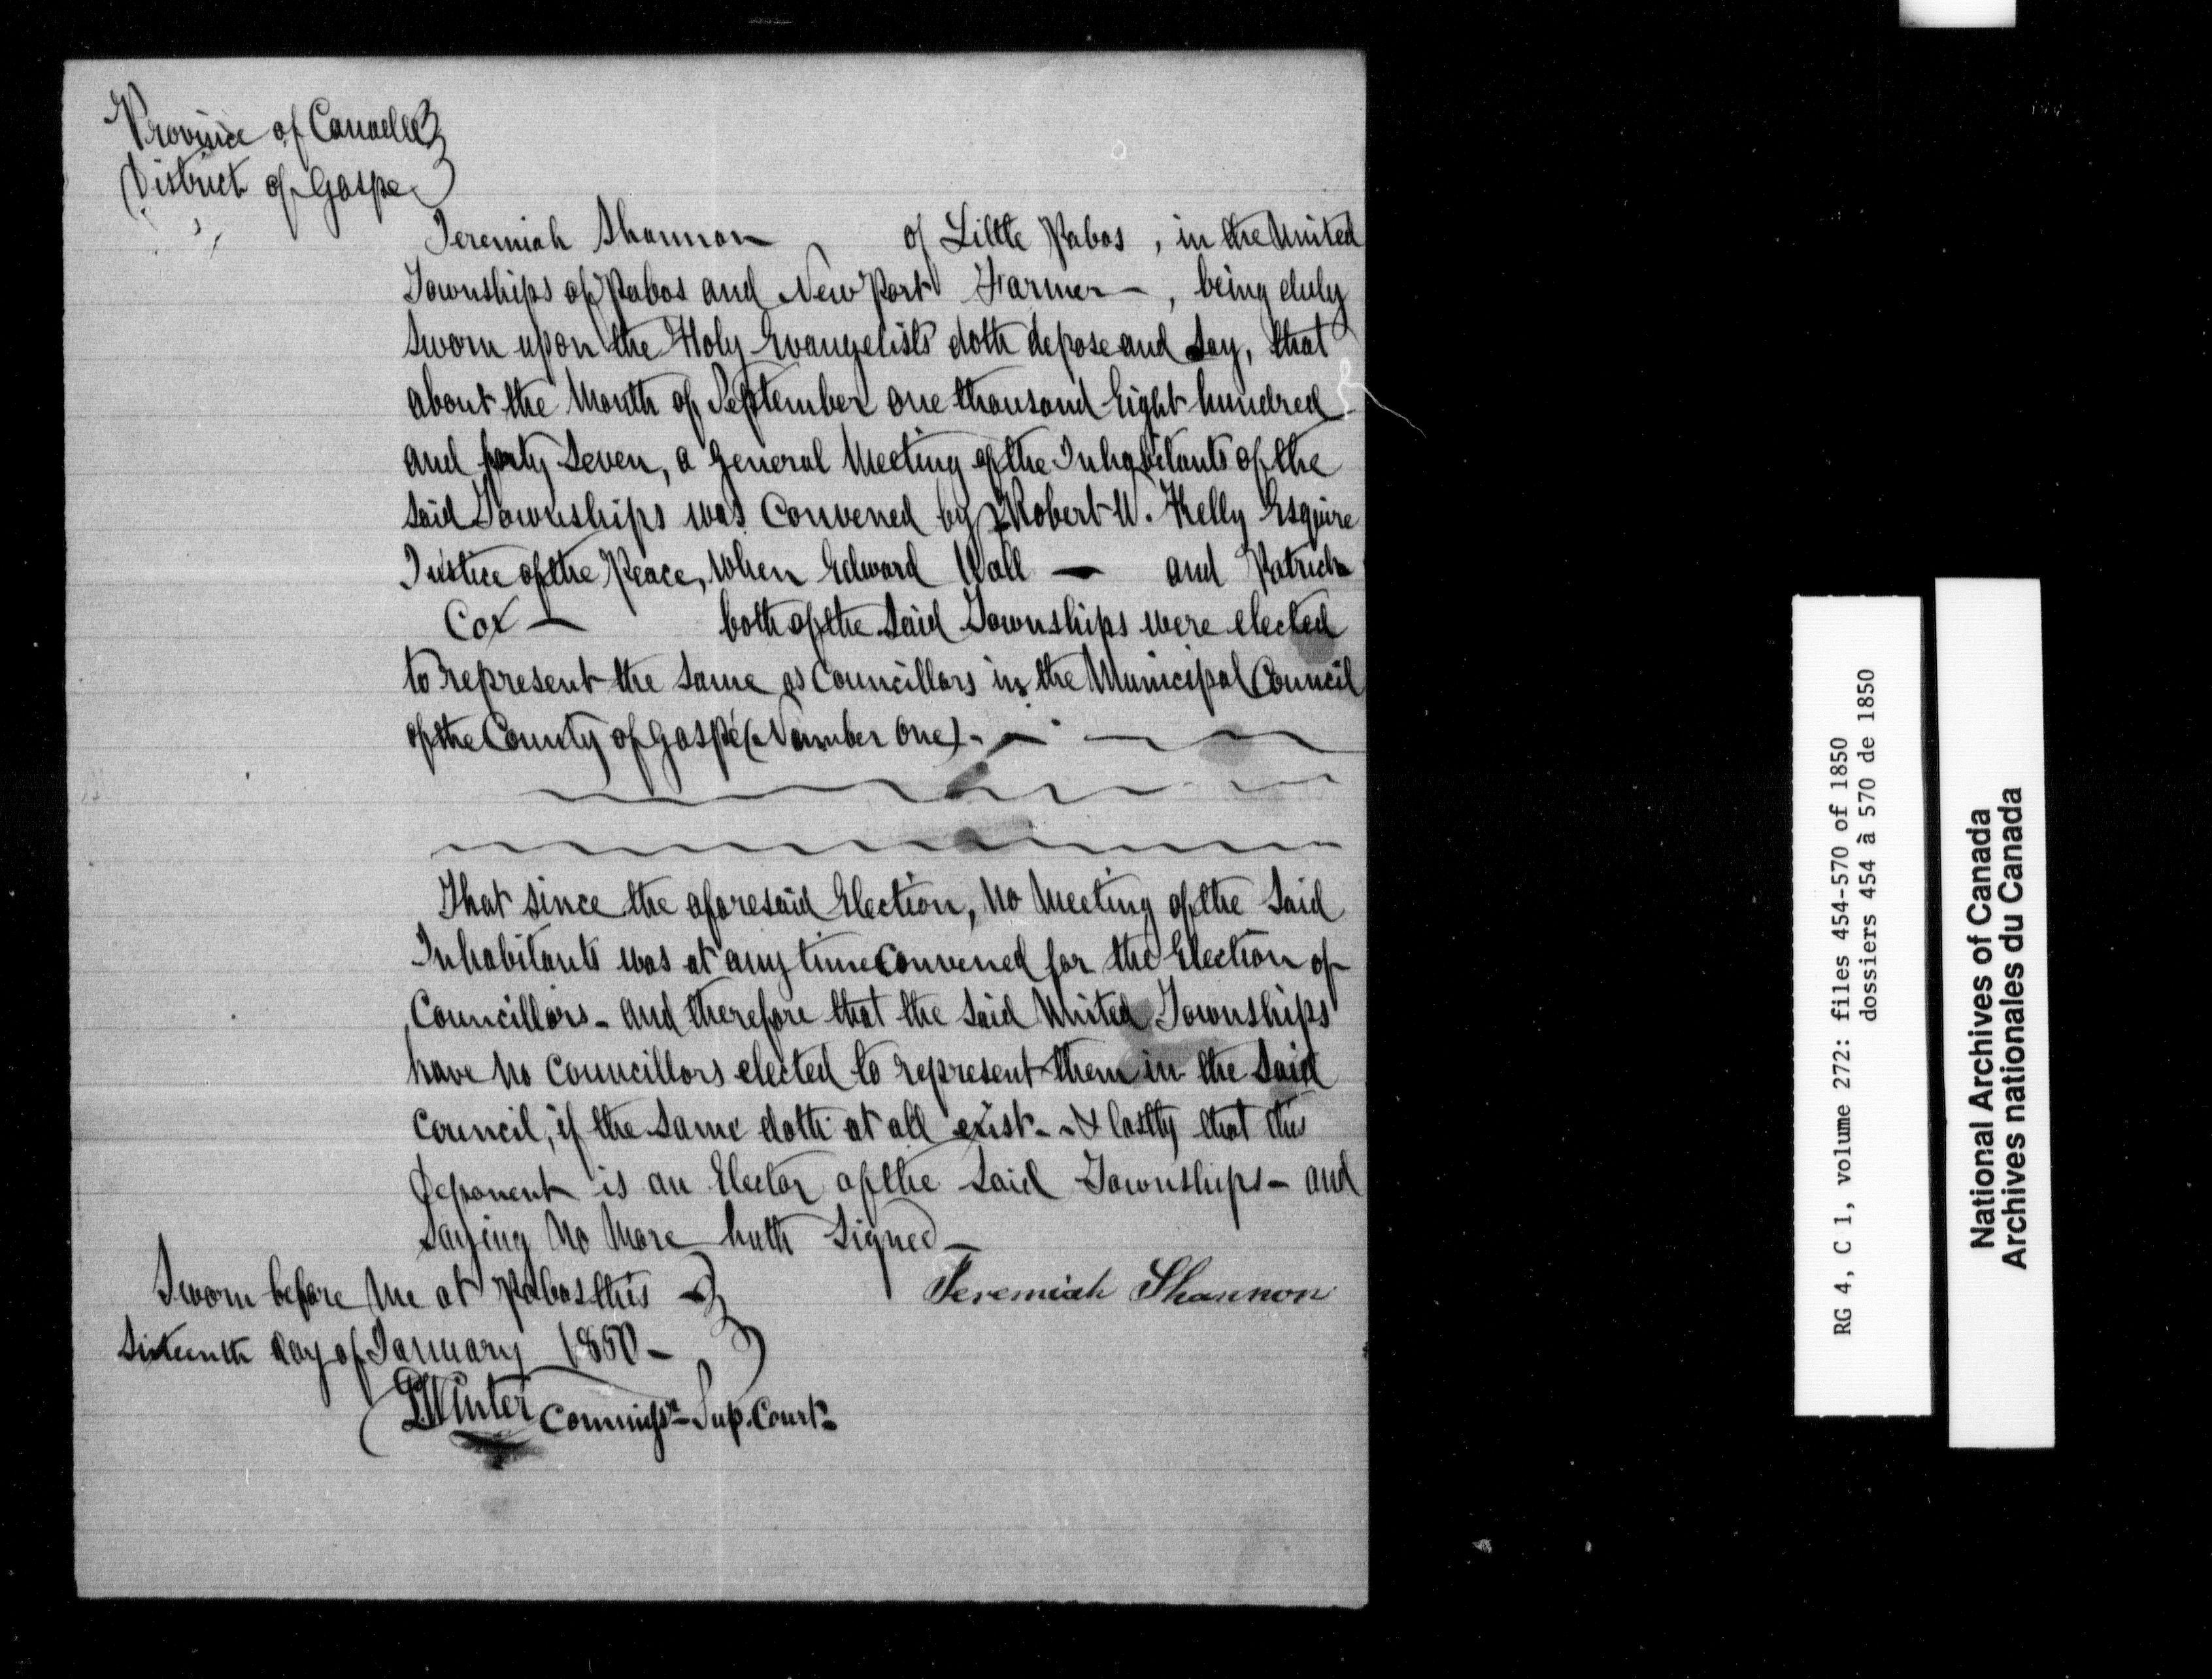 Province of Canada
District of Gaspe
Jeremiah Shannon of Little Pabos, in the United
Townships of Pabos and New Port Farmer —, being duly
Sworn upon the Holy Evangelists doth depose and Say, that
about the Month of September one thousand Eight hundred
and forty Seven, a general Meeting of the Inhabitants of the
Said Townships was Convened by Robert W. Kelly Esquire
Justice of the Peace, When Edward Wall — and Patrick
Cox — both of the Said Townships were elected
to represent the Same as Councillors in the Municipal Council
of the County of Gaspé (Number One) -
That since the aforesaid Election, No Meeting of the Said
Inhabitants was at any time Convened for the Election of
Councillors - and therefore that the Said United Townships
have no Councillors elected to represent them in the Said
Council, if the Same doth at all exist - & lastly that this
Deponent is an Elector of the Said Townships - and
Saying No More hath Signed —
Jeremiah Shannon
Sworn before Me at Pabos this
Sixteenth day of January 1850 -
PWinter Commissr Sup. Court
RG 4, C 1, volume 272: files 454-570 of 1850
dossiers 454 à 570 de 1850
National Archives of Canada
Archives nationales du Canada